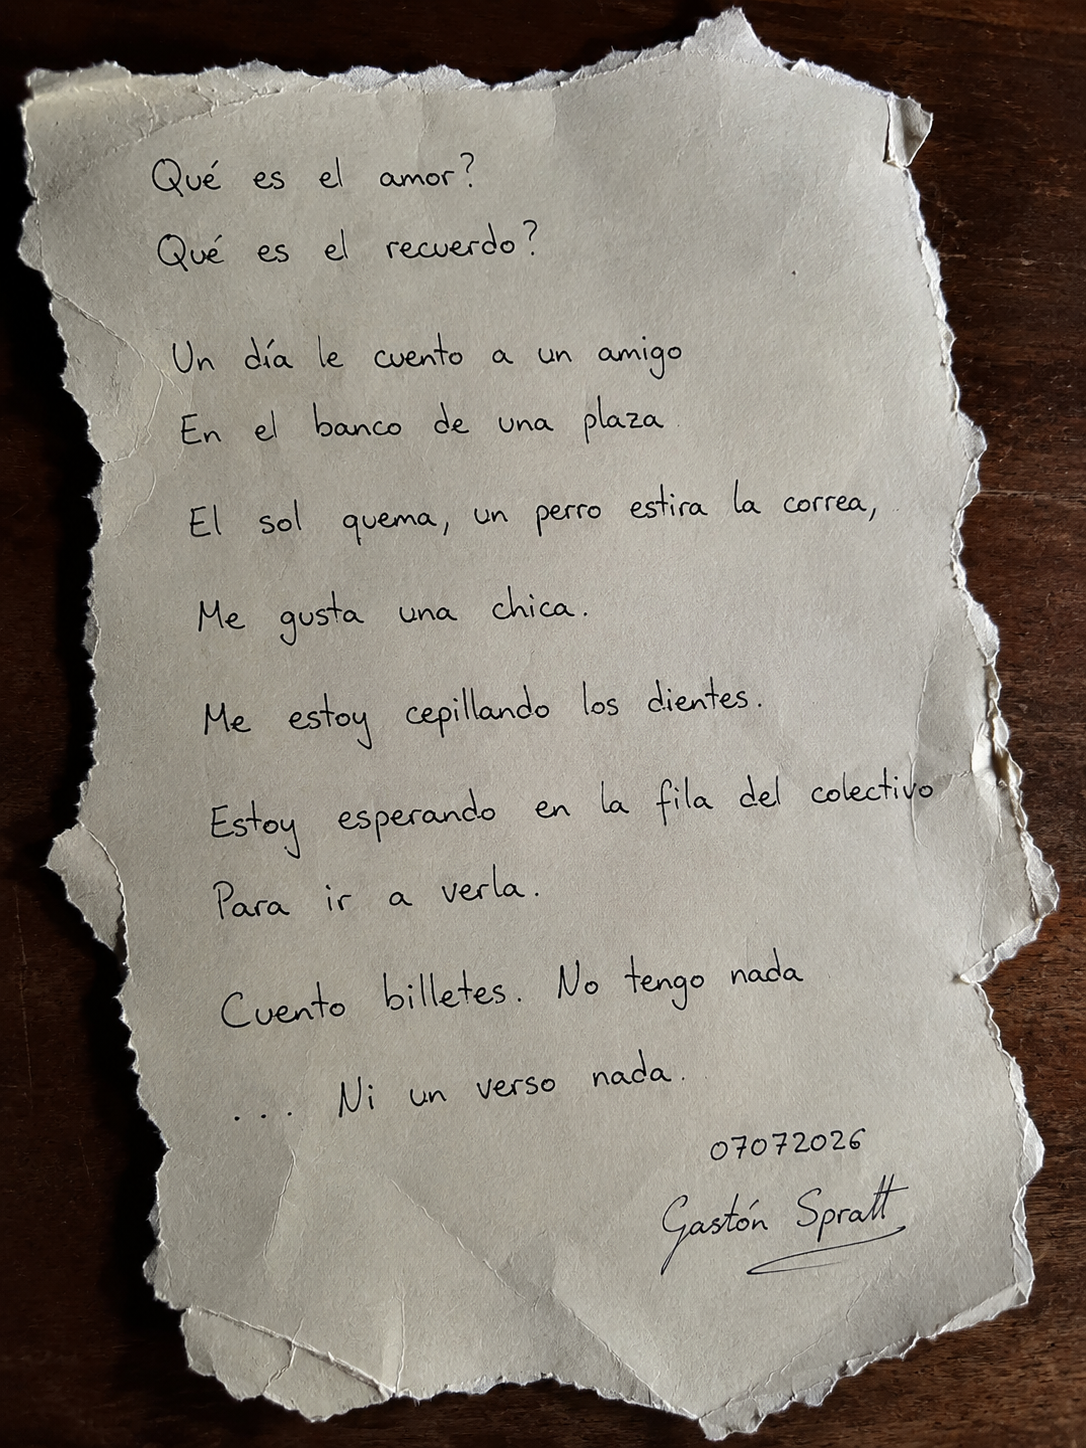 Qué es el amor?
Qué es el recuerdo?
Un día le cuento a un amigo
En el banco de una plaza
El sol quema, un perro estira la correa,
Me gusta una chica.
Me estoy cepillando los dientes.
Estoy esperando en la fila del colectivo
Para ir a verla.
Cuento billetes. No tengo nada
... Ni un verso nada.
07072026
Gastón Spratt